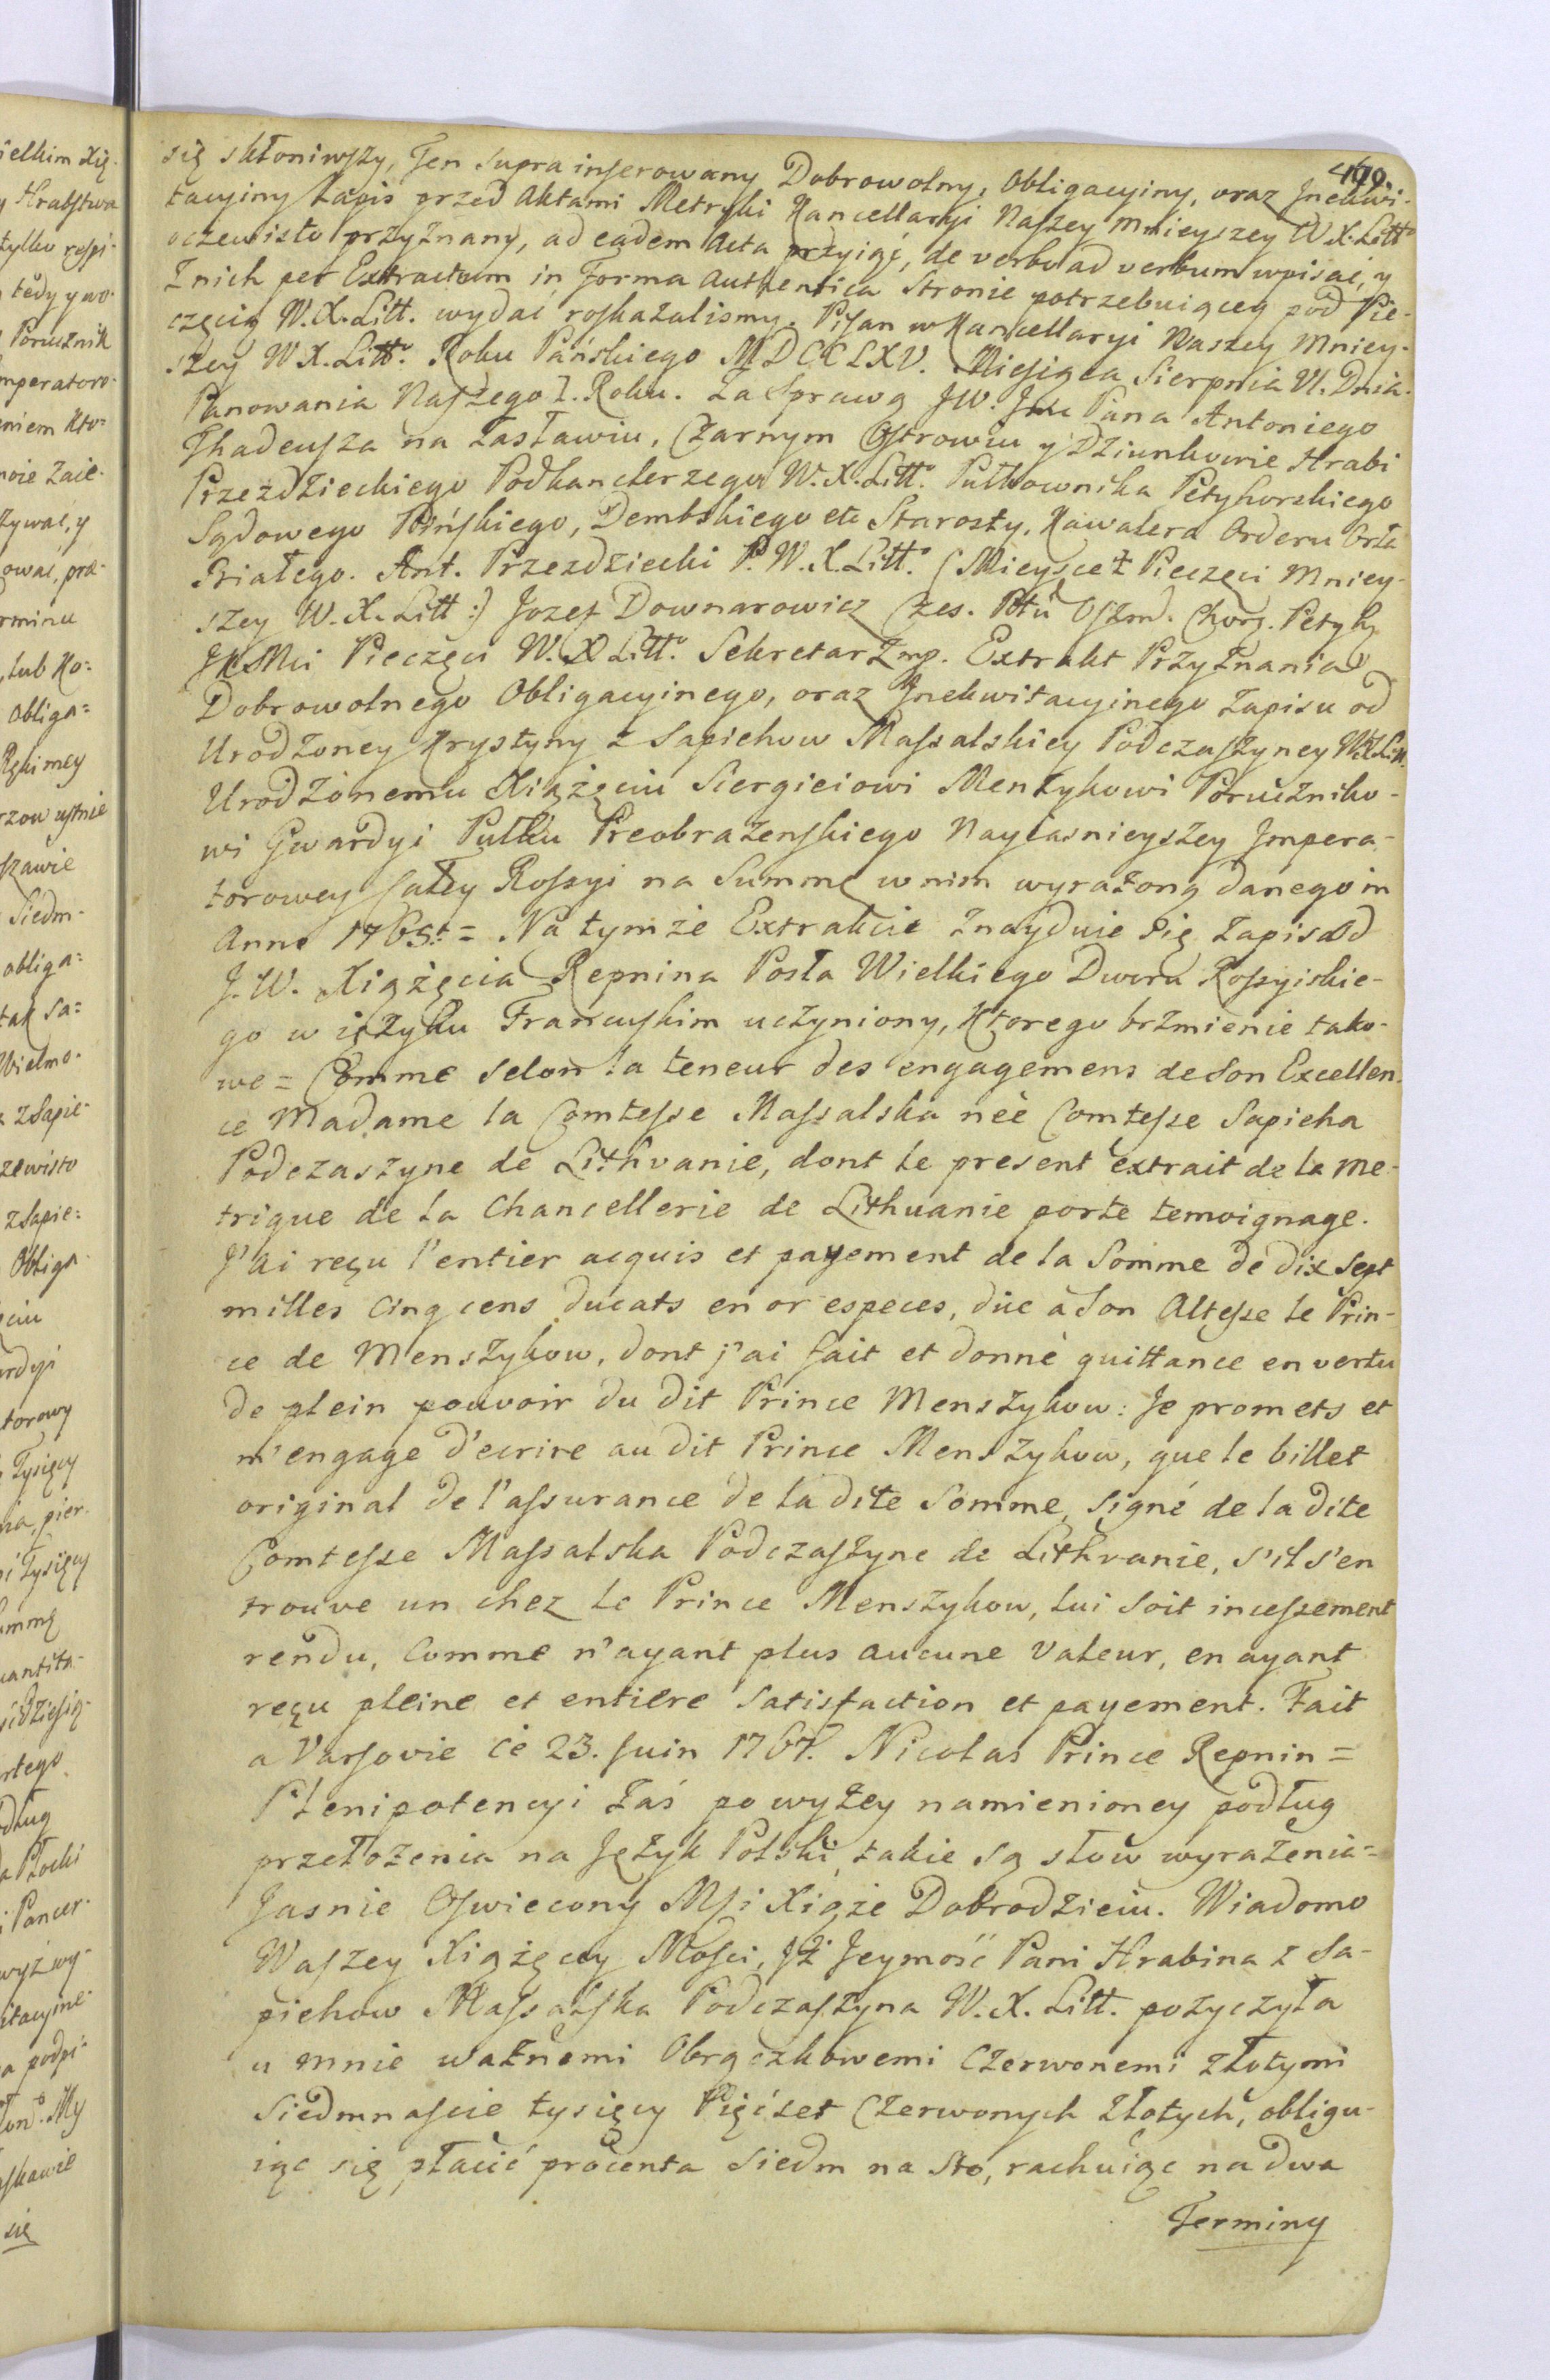 470.
się skłoniwszy, Ten supra inserowany Dobrowolny, Obligacyiny, oraz Inekwi-
tacyiny Zapis przed Aktami Metryki Kancellaryi Naszey Mnieyszey W. X. Litto
oczewisto przyznany, ad eadem Acta przyiąć, de verbo ad verbum wpisać, y
z nich per Extractum in Forma Authentica Stronie potrzebuiącey pod Pie-
częcią W. X. Litt. wydać roskazalismy. Pisan w Kancellaryi Naszey Mniey-
szey W X. Litto. Roku Pańskiego MDCCLXV. Miesiąca Sierpnia VI. Dnia.
Panowania Naszego I. Roku. Za Sprawą JW. Jmci Pana Antoniego
Thadeusza na Zasławiu, Czarnym Ostrowiu y Dziunkowie Hrabi
Przezdzieckiego Podkanclerzego W. X. Litto. Pułkownika Petyhorskiego
Sądowego Pińskiego, Dembskiego etc Starosty, Kawalera Orderu Orła
Białego. Ant. Przezdziecki P. W. X. Litto. (Mieysce Pieczęci Mniey-
szey W. X. Litt:) Jozef Downarowicz Czes. Pttu Oszm. Chorą. Petyh
JKMci Pieczęci W. X Litto. Sekretarz mp. Extrakt Przyznania
Dobrowolnego Obligacyinego, oraz Inekwitacyinego Zapisu od
Urodzoney Krystyny z Sapiehow Massalskiey Podczaszyney W.X.Litt.
Urodzonemu Xiążęciu Siergieiowi Menżykowi Poruczniko-
wi Gwardyi Pułku Preobrażenskiego Nayiasnieyszey Impera-
torowey Całey Rossyi na Summę w nim wyrażoną danego in
Anno 1765t = Na tymże Extrakcie znayduie się Zapis od
J. W. Xiążęcia Repnina Posła Wielkiego Dworu Rossyiskie-
go w ięzyku Francuskim uczyniony, ktorego brzmienie tako-
we = Comme selon la teneur des engagemens de Son Excellen-
ce Madame la Comtesse Massalska nèe Comtesse Sapieha
Podczaszyne de Lithvanie, dont le present extrait de la me-
trique de la Chancellerie de Lithuanie porte temoignage.
J'ai reçu l'entier acquis et payement de la Somme de dix sept
milles cinq cens ducats en or especes, düe a Son Altesse le Prin-
ce de Menszykow, dont j'ai fait et donnè quittance en vertu
de plein pouvoir du dit Prince Menszykow: Je promets et
m'engage d'ecrire au dit Prince Menszykow, que le billet
original de l'assurance de la dite Somme, signé de la dite
Comtesse Massalska Podczaszyne de Lithvanie, s'il s'en
trouve un chez le Prince Menszykow, lui soit incessement
rendu, comme n'ayant plus aucune valeur, en ayant
reçu pleine et entiere satisfaction et payement. Fait
a Varsovie ce 23. Juin 1767. Nicolas Prince Repnin =
Plenipotencyi zaś powyżey namienioney podług
przełożenia na Język Polski, takie są słow wyrażenia =
Jasnie Oswiecony Msi Xiąże Dobrodzieiu. Wiadomo
Waszey Xiążęcey Mości, Jż Jeymość Pani Hrabina z Sa-
piehow Massalska Podczaszyna W. X. Litt. pożyczyła
u mnie ważnemi Obrączkowemi Czerwonemi złotymi
Siedmnascie tysięcy Pięćset Czerwonych złotych, obligu-
iąc się płacić procenta siedm na sto, rachuiąc na dwa
Terminy